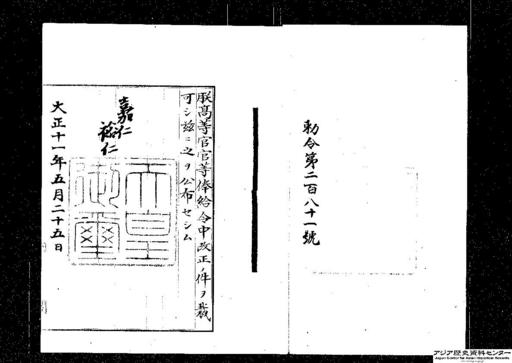 勅令第二百八十一號
朕高等官官等俸給令中改正ノ件ヲ裁
可シ玆ニ之ヲ公布セシム
嘉仁
裕仁
天皇
御璽
大正十一年五月二十五日
アジア歴史資料センター
Japan Center for Asian Historical Records